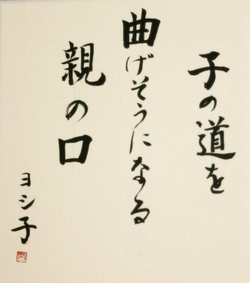 子の道を
曲げそうになる
親の口
ヨシ子